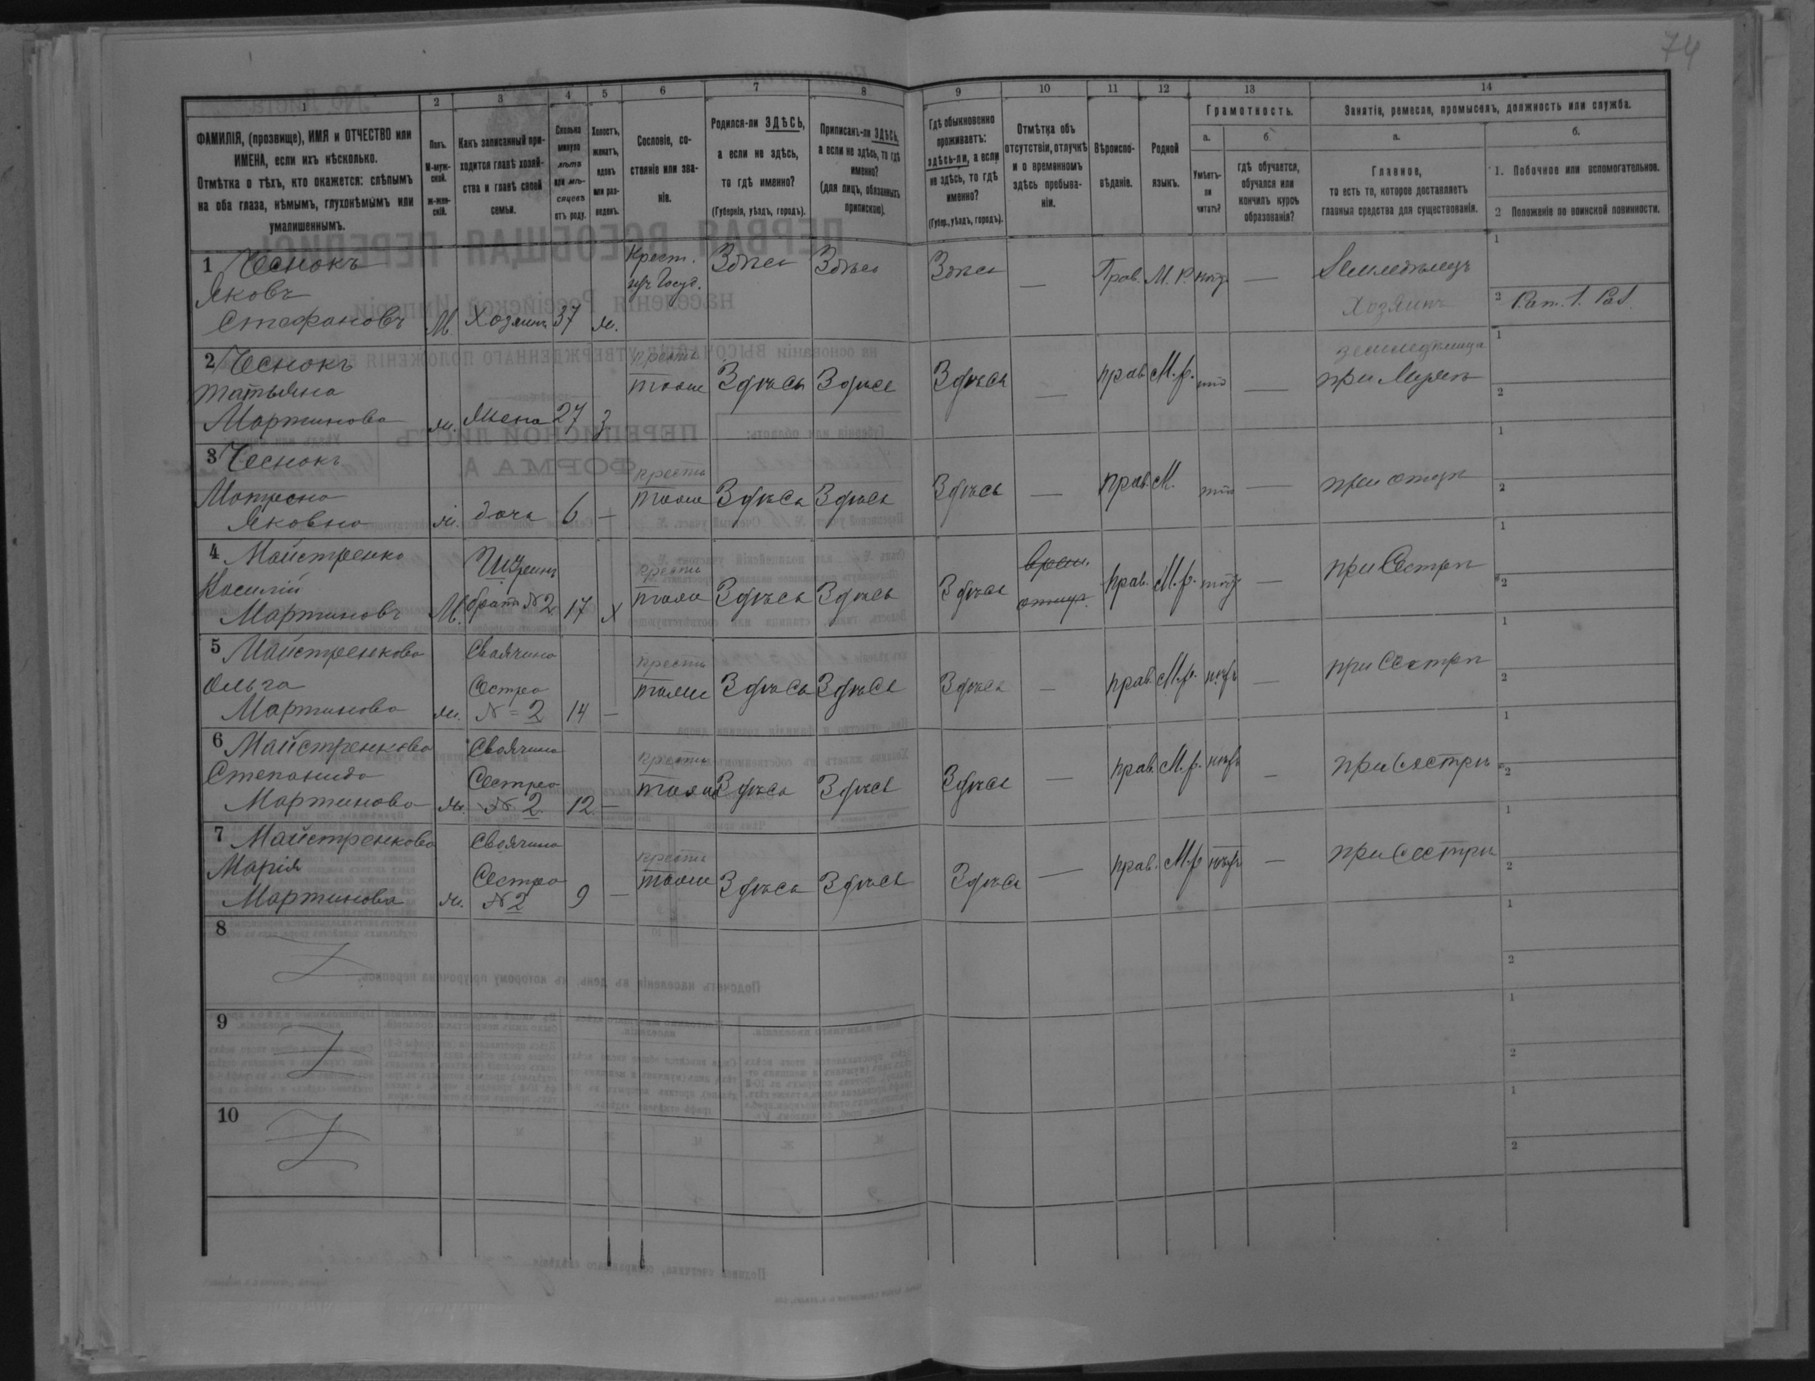 74
1
2
3
4
5
6
7
8
9
10
11
12
13
14
ФАМИЛІЯ, (прозвище), ИМЯ и ОТЧЕСТВО или
ИМЕНА, если ихъ нѣсколько.
Отмѣтка о тѣхъ, кто окажется: слѣпымъ
на оба глаза, нѣмымъ, глухонѣмымъ или
умалишеннымъ.
Полъ.
М-муж-
ской.
Ж-жен-
скій.
Какъ записанный при-
ходится главѣ хозяй-
ства и главѣ своей
семьи.
Сколько
минуло
лѣтъ
или мѣ-
сяцевъ
отъ роду.
Холостъ,
женатъ,
вдовъ
или раз-
веденъ.
Сословіе, со-
стояніе или зва-
ніе.
Родился-ли ЗДѢСЬ,
а если не здѣсь,
то гдѣ именно?
(Губернія, уѣздъ, городъ).
Приписанъ-ли ЗДѢСЬ,
а если не здѣсь, то гдѣ
именно?
(для лицъ, обязанныхъ
припискою).
Гдѣ обыкновенно
проживаетъ:
здѣсь-ли, а если
не здѣсь, то гдѣ
именно?
(Губер., уѣздъ, городъ).
Отмѣтка объ
отсутствіи, отлучкѣ
и о временномъ
здѣсь пребыва-
ніи.
Вѣроиспо-
вѣданіе.
Родной
языкъ.
Грамотность.
а.
Умѣетъ-
ли
читать?
б.
гдѣ обучается,
обучался или
кончилъ курсъ
образованія?
Занятія, ремесла, промыселъ, должность или служба.
а.
Главное,
то есть то, которое доставляетъ
главныя средства для существованія.
б.
1. Побочное или вспомогательное.
2 Положеніе по воинской повинности.
1 Чеснокъ
Яковъ
Стефановъ
М
Хозяинъ
37
ж.
Крест.
Здѣсь
Здѣсь
Здѣсь
—
Прав.
М. Р.
—
Земледѣлецъ
Хозяинъ
1
2
2 Чеснокъ
Татьяна
Мартинова
ж.
Жена
27
З
Здѣсь
Здѣсь
Здѣсь
—
прав.
М. р.
—
при Мужѣ
1
2
3 Чеснокъ
Яковна
ж.
дочь
6
—
Здѣсь
Здѣсь
Здѣсь
—
прав.
М.
—
при отцѣ
1
2
4 Майстренко
Василій
Мартиновъ
М.
Шуринъ
братъ №2
17
х
Здѣсь
Здѣсь
Здѣсь
прав.
М. р.
—
при Сестрѣ
1
2
5 Майстренкова
Ольга
Мартинова
ж.
Своячина
Сестра
№ 2
14
—
Здѣсь
Здѣсь
Здѣсь
—
прав.
М. р.
—
при Сестрѣ
1
2
6 Майстренкова
Степанида
Мартинова
ж.
Своячина
Сестра
№ 2
12
—
Здѣсь
Здѣсь
Здѣсь
—
прав.
М. р.
—
при Сестрѣ
1
2
7 Майстренкова
Марія
Мартинова
ж.
Своячина
Сестра
№ 2
9
—
Здѣсь
Здѣсь
Здѣсь
—
прав.
М. р.
—
при Сестрѣ
1
2
8
1
2
9
1
2
10
1
2